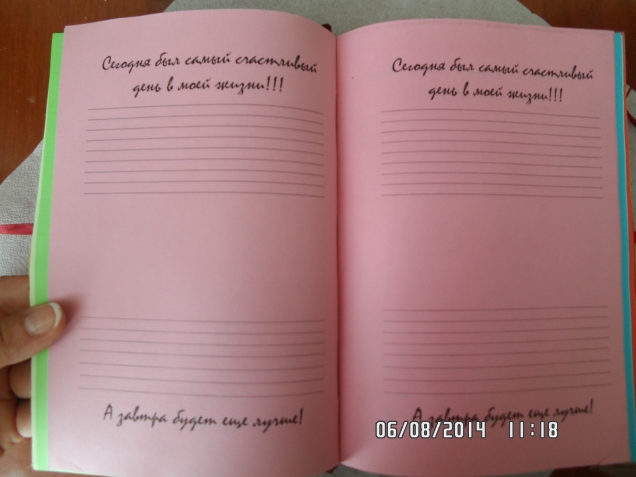 Сегодня был самый счастливый
день в моей жизни!!!
А завтра будет еще лучше!
Сегодня был самый счастливый
день в моей жизни!!!
А завтра будет еще лучше!
06/08/2014 11:18